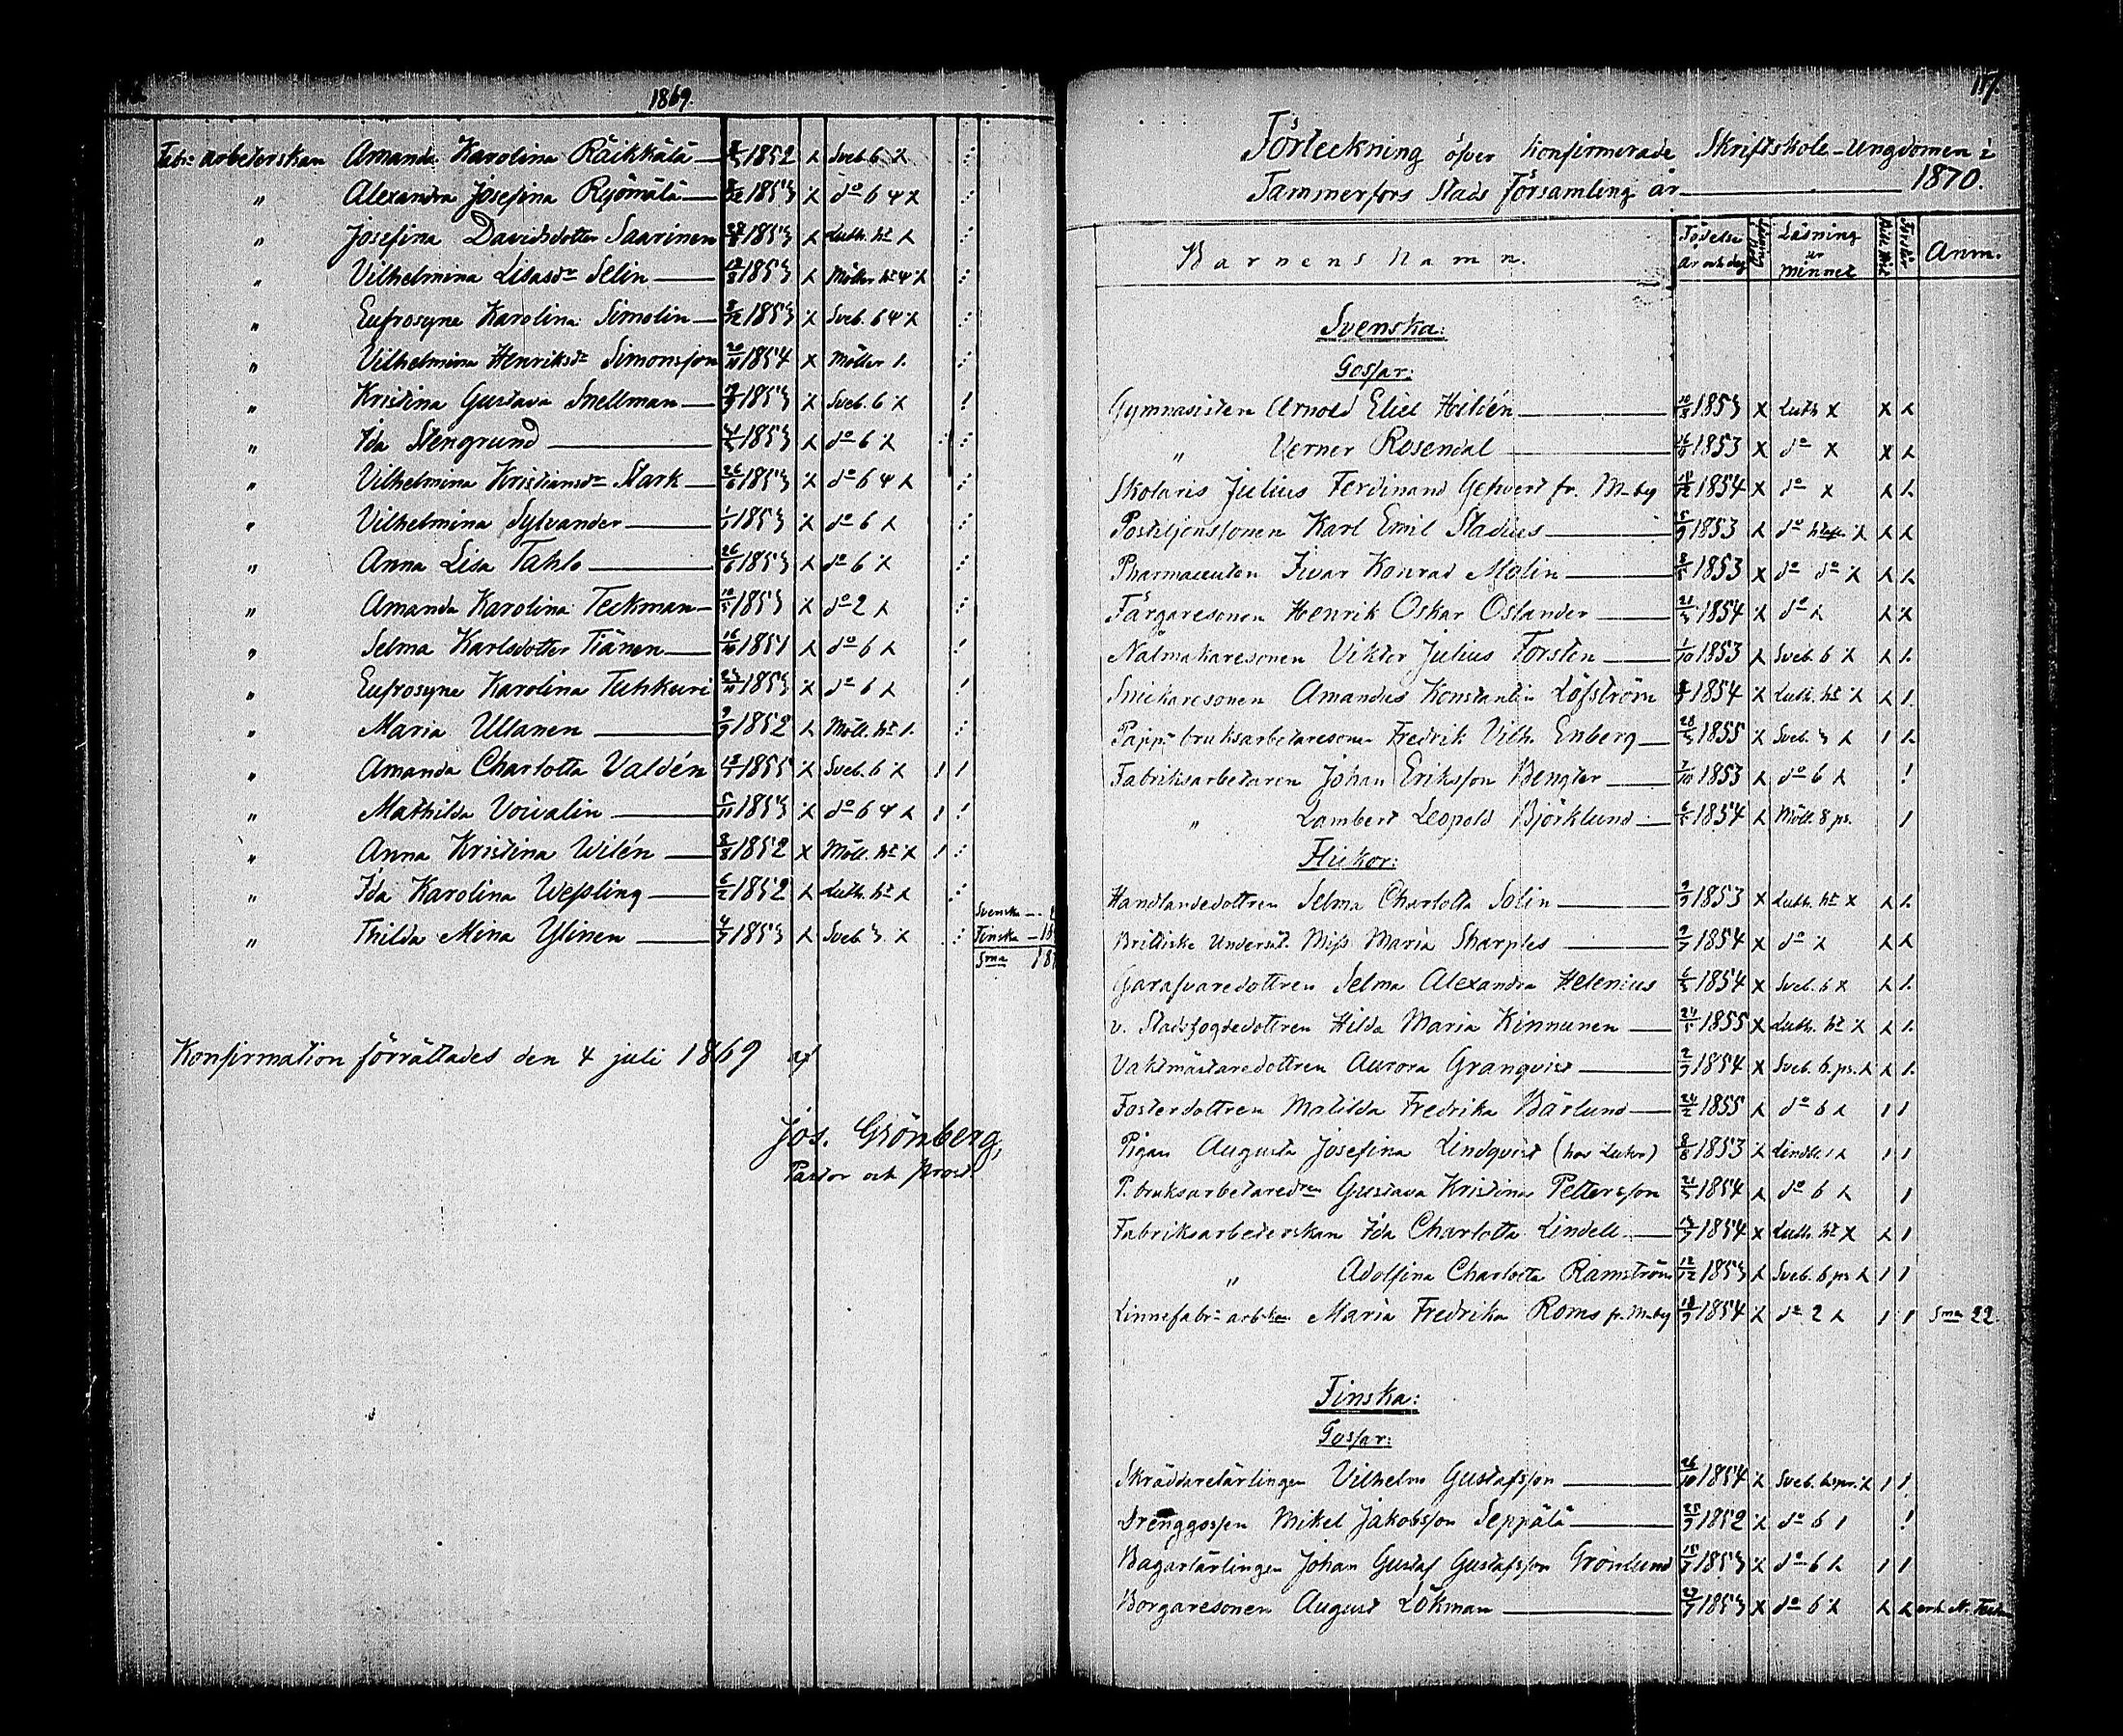 1869.
Fabr: arbeterskan Amanda Karolina Räikkälä 1852 Sveb. 6
" Alexandra Josefina Ryömälä 1853 do 6
" Josefina Davidsdotter Saarinen 1853 Luth. ht
" Vilhelmina Lisasdr Selin 1853 Möller ht
" Eufrosyne Karolina Simolin 1853 Sveb. 6
" Vilhelmina Henriksdr Simonsson 20/11 1854 Möller 1.
" Kristina Gustava Snellman 1853 Sveb. 6
" Ida Stengrund 1853 do 6
" Vilhelmina Kristiansdr Stark 26/6 1853 do 6
" Vilhelmina Sylvander 1853 do 6
" Anna Lisa Tahlo 26/6 1853 do 6
" Amanda Karolina Teckman 10/5 1853 do 2
" Selma Karlsdotter Tiänen 16/10 1851 do 6
" Eufrosyne Karolina Tuhkuri 1853 do 6
" Maria Ullanen 9/9 1852 Möll. ht
" Amanda Charlotta Valdén 1855 Sveb. 6
" Mathilda Voivalin 5/11 1853 do 6
" Anna Kristina Wilén 8/8 1852 Möll. ht
" Ida Karolina Wessling 6/2 1852 Luth. ht
Svenska
" Thilda Mina Ylinen 1853 Sveb. 3 Finska
Sma
Konfirmation förrättades den 4 juli 1869 af
Jos. Grönberg,
Pastor och prost.
117.
Förteckning öfver konfirmerade Skriftskole-Ungdomen i
Tammerfors Stads församling år 1870.
Barnens namn. Födelse år och dag Läsning ur minnet Anm.
Svenska:
Gossar:
Gymnasisten Arnold Eliel Hildén 10/8 1853 x Luth x x
" Verner Rosendal 1853 x do x x
Skolaris Julius Ferdinand Gehvert fr. M-by 1854 x do x
Postiljonssonen Karl Emil Stadius 5/9 1853 do
Pharmaceuten Ivar Konrad Molin 1853 x do do
Färgaresonen Henrik Oskar Oslander 21/3 1854 do
Nålmakaresonen Viktor Julius Forsten 1/10 1853 Sveb. 6
Snickaresonen Amandus Konstantin Löfström 1854 Luth. ht
Papp: bruksarbetaresonen Fredrik Vilh. Enberg 28/3 1855 Sveb. 3
Fabriksarbetaren Johan Eriksson Bengter 7/10 1853 do 6
" Lambert Leopold Björklund 1854 Möll. 8 ps.
Flickor:
Handlandedottren Selma Charlotta Solin 1853 x Luth. ht x
Brittiske Undersåt. Miss Maria Sharples 1854 x do
Garfvaredottren Selma Alexandra Helenius 6/3 1854 x Sveb. 6 x
v. Stadsfogdedottren Hilda Maria Kinnunen 24/5 1855 x Luth. ht
Vaktmästaredottren Aurora Granqvist 1854 x Sveb. 6 ps.
Fosterdottren Matilda Fredrika Bärlund 24/2 1855 do 6
Pigan Augusta Josefina Lindqvist 8/8 1853
P. bruksarbetaredren Gustava Kristina Pettersson 21/3 1854 do 6
Fabriksarbeterskan Ida Charlotta Lindell 1854 x Luth. ht x
" Adolfina Charlotta Ramström 12/12 1853 Sveb. 6 ps
Linnefabr: arb-kan Maria Fredrika Roms fr. M-by 1854 do 2 Sma 22.
Finska:
Gossar:
Skräddarelärlingen Vilhelm Gustafsson 26/10 1854 Sveb.
Drenggossen Mikel Jakobsson Seppälä 25/9 1852 do 6
Bagarlärlingen Johan Gustaf Gustafsson Grönlund 1853 do 6
Borgaresonen August Lökman 1853 x do 6